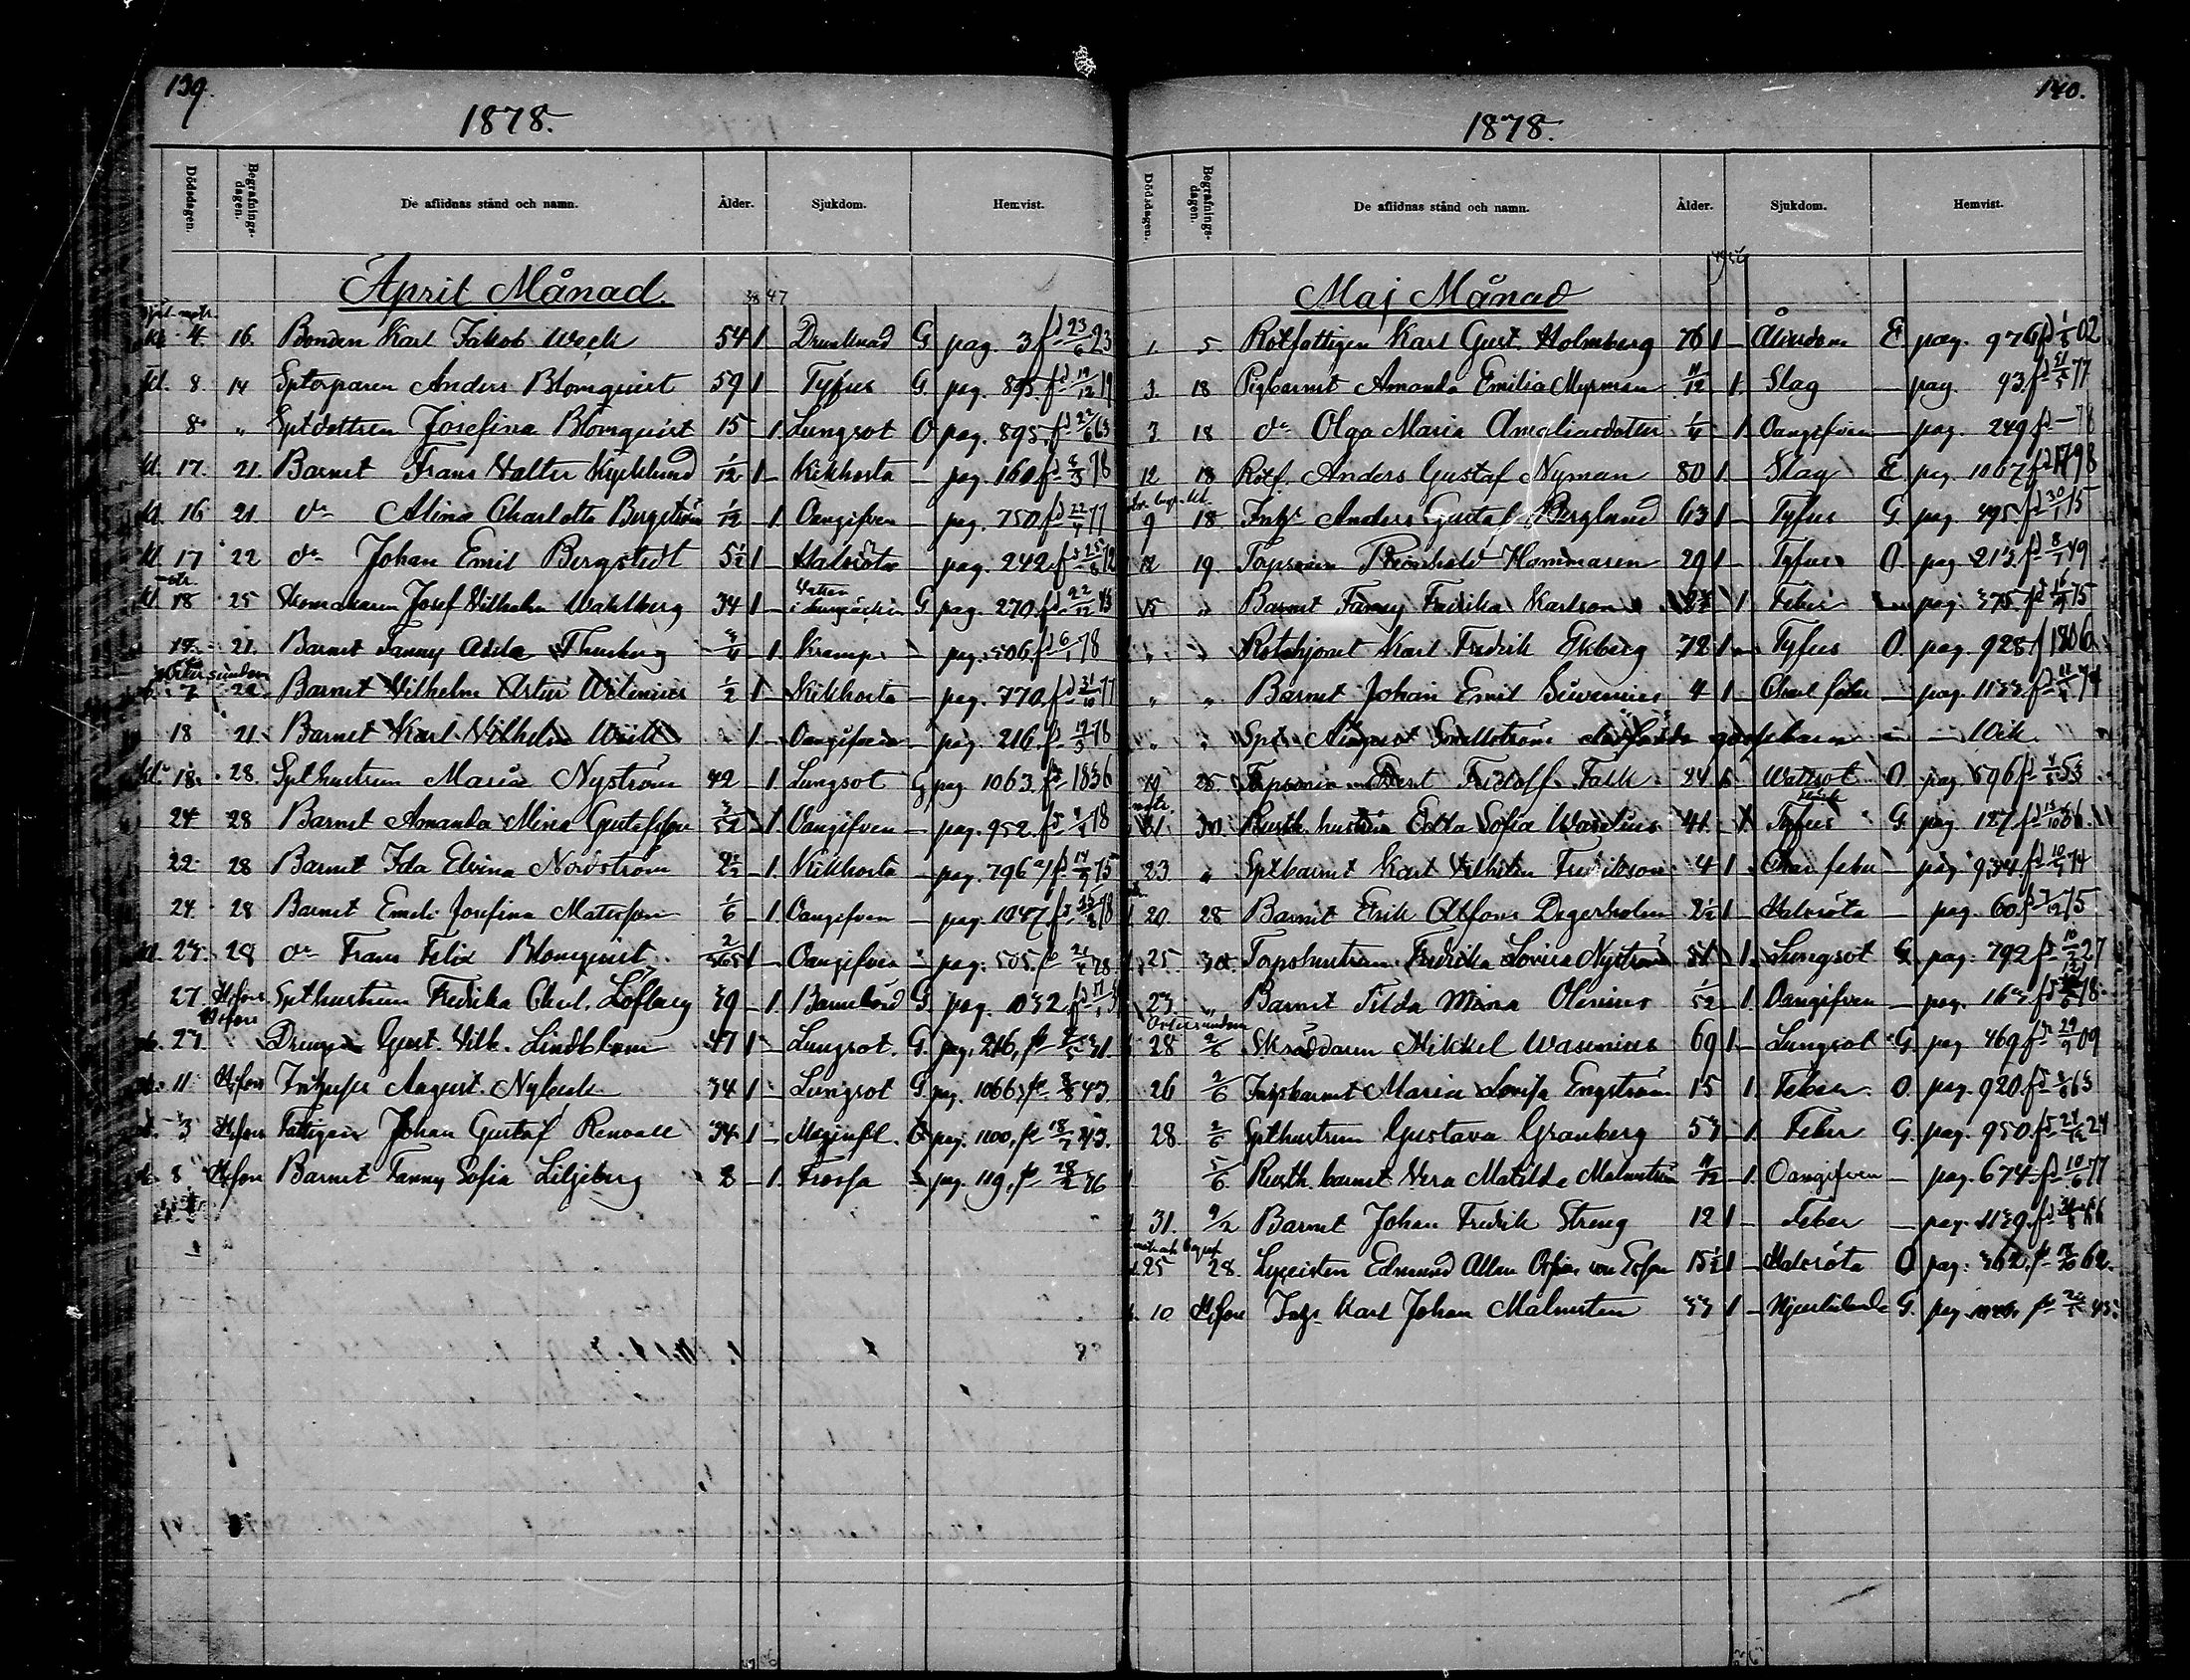 139.
1878.
Dödsdagen. Begrafnings-dagen. De aflidnas stånd och namn. Ålder. Sjukdom. Hemvist.
April Månad.
38 47
4. 16. Bonden Karl Jakob Weck 54 1 – Drunknad G. pag. 3 fd 23/6 23
kl. 8 14 Sptorparen Anders Blomquist 59 1 – Tyfus G. pag. 895. fd 19/12 19
8 " Sptdottren Josefina Blomquist 15 – 1. Lungsot O pag. 895. fd 22/6 63
kl. 17. 21. Barnet Frans Valter Kycklund 1/12 1 – Kikhosta – pag. 160 fd 8/3 78
kl. 16 21. do Alina Charlotta Bergström 1/12 – 1. Oangifven – pag. 750. fd 22/4 77
kl. 17 22 do Johan Emil Bergstedt 5½ 1 – Halsröta – pag. 242. fd 25/8 72
kl. 18 25 Skomakaren Josef Vilhelm Wahlberg 34 1 – Vatten i lungsäcken G pag. 270. fd 22/12 43
17. 21. Barnet Fanny Adéle Thunberg 3/4 – 1. Kramp – pag. 506. fd 6/1 78
Östersundom
7 22. Barnet Vilhelm Artur Wilenius 1/2 1 – Kikhosta – pag. 770. fd 31/10 77
18 21. Barnet Karl Vilhelm 1 – Oangifven – pag. 216. fd 19/3 78
kl. 18. 28. Spthustrun Maria Nyström 42 – 1. Lungsot G pag. 1063. fd 1836
24 28 Barnet Amanda Mina Gustafsson 3/52 – 1. Oangifven – pag. 952. fd 4/4 78
22 28 Barnet Ida Elvina Nordström 2½ – 1. Kikhosta – pag. 796 fd 14/9 75
24. 28 Barnet Emeli Josefina Matersson 1/6 – 1. Oangifven – pag. 1047 fd 78
kl. 27. 28 do Frans Felix Blomquist 2/365 1 – Oangifven – pag. 505. fd 78
27 H:fors Spthustrun Fredrika Charl. Löfberg 39 – 1. Barnsbörd G. pag. 1032. fd
H:fors
27. Drengen Gust. Vilh. Lindblom 47 1 – Lungsot. G. pag. 216, fd 31.
11 H:fors August Nyberk 34 1 – Lungsot G. pag. 1066, fd 8/8 43.
3 H:fors Fattigen Johan Gustaf Renvall 34 1 – Maginfl. pag. 1100, fd 18/7 43.
8 H:fors Barnet Fanny Sofia Liljeberg 2 – 1. Frossa – pag. 119, fd 28/2 76
140.
1878.
Dödsdagen. Begrafnings-dagen. De aflidnas stånd och namn. Ålder. Sjukdom. Hemvist.
Maj Månad
1. 5. Rotfattigen Karl Gust. Holmberg 76 1 – Ålderdom E pag. 976 fd 1/8 02
3. 18 Pigbarnet Amanda Emilia Myrman 11/12 – 1. Slag – pag. 93. fd 31/5 77
3 18 do Olga Maria Amaliasdotter 1/4 – 1 Oangifven – pag. 249 fd – 78
12 18 Rotf. Anders Gustaf Nyman 80 1 – Slag E. pag. 1067 fd 1798
9 18. Anders Gustaf Berglund 63 1 – Tyfus G. pag. 495. fd 30/1 15
12 19. Torpsonen Reinhold Hammaren 29 1 – Tyfus O. pag. 213. fd 8/1 49
15 " Barnet Fanny Fredrika Karlson 2 1 Feber pag. 375. fd 16/9 75
" " Rotehjonet Karl Fredrik Ekberg 72 1 – Tyfus O. pag. 928. f 1806.
" " Barnet Johan Emil Siwenius 4 1 – Charl feber – pag. 1133. fd 74
" " Spt. August Sundströms dödfödda gossebarn
19 25. Torpsonen Fridolf Falk 24 1 – Wattsot O. pag. 596 fd 53
21. 30. Rusth. hustrun Edla Sofia Waselius 41 – 1 Tyfus G. pag. 127 fd 13/10 36.
23. " Sptbarnet Karl Vilhelm Fredrikson 4 1 – Charl feber – pag. 934 fd 10/3 74
20 28 Barnet Erik Alfons Degerholm 2½ 1 – Halsröta – pag. 60. fd 7/12 75
25. 30. Torpshustrun Fredrika Lovisa Nyström 51 – 1. Lungsot G. pag. 792 fd 10/2 27
23. " Barnet Tilda Mina Olenius 1/52 – 1. Oangifven – pag. 163 fd 78.
Östersundom
28 2/6 Skräddaren Mikkel Wasenius 69 1 – Lungsot G. pag. 469 fd 29/9 09
26 2/6 Inhysbarnet Maria Lovisa Engström 15 1. Feber O. pag. 920. fd 63
28. 2/6 Spthustrun Gustava Granberg 53 – 1. Feber G. pag. 950. fd 24/12 24
5/6 Rusth. barnet Vera Matilda Malmström 11/12 – 1. Oangifven – pag. 674 fd 10/6 77
31. 9/2 Barnet Johan Fredrik Streng 12 1 – Feber – pag. 1139. fd 66
25 28. Lyceisten Edmund Allan Ossian von Essen 15½ 1 – Halsröta O pag. 362. fd 18/10 62.
10 H:fors Karl Johan Malmsten 33 1 – G. pag.